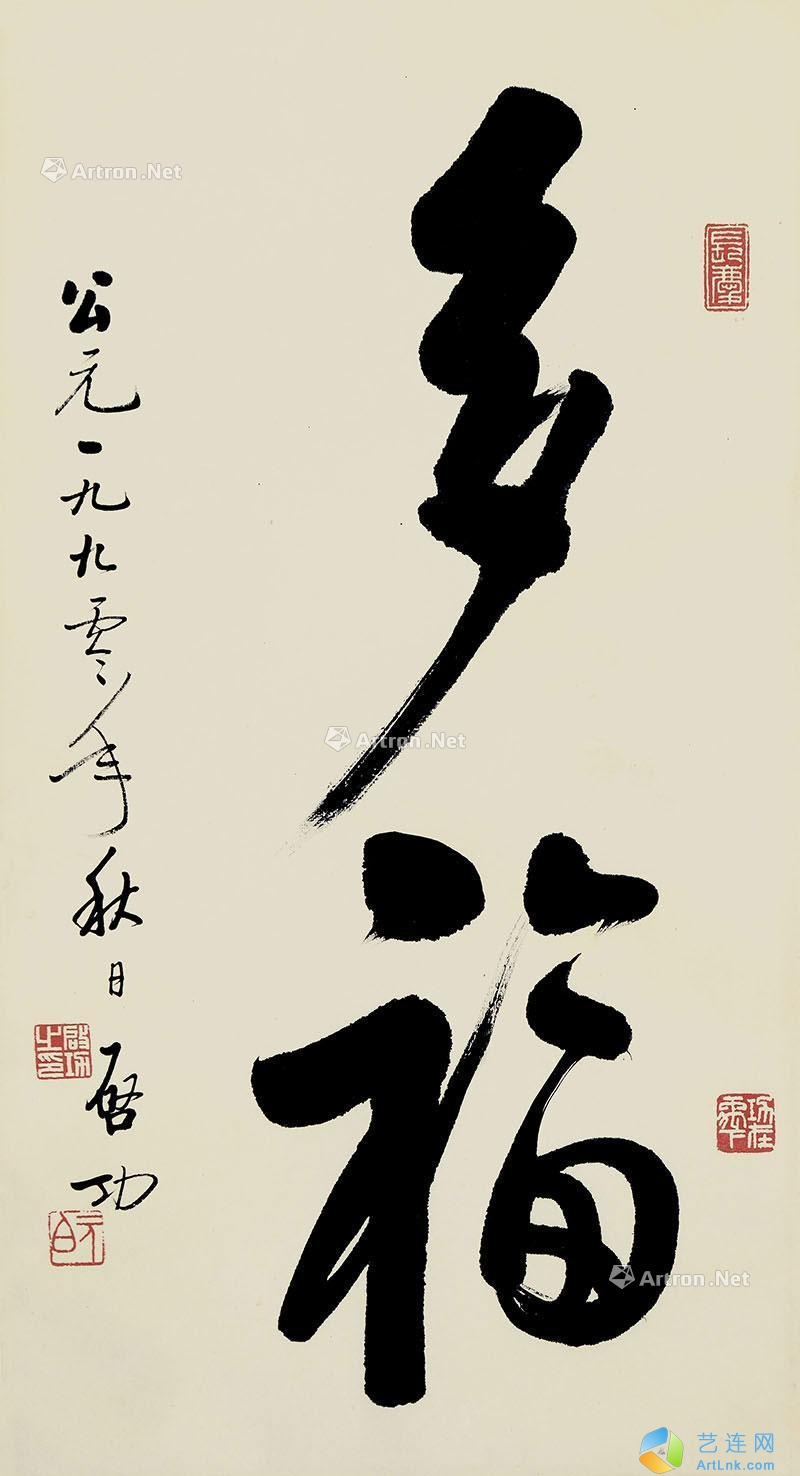 多福
公元一九九零年秋日 启功
启功之印
元白
Artron.Net
Artron.Net
Artron.Net
艺连网
ArtLnk.com